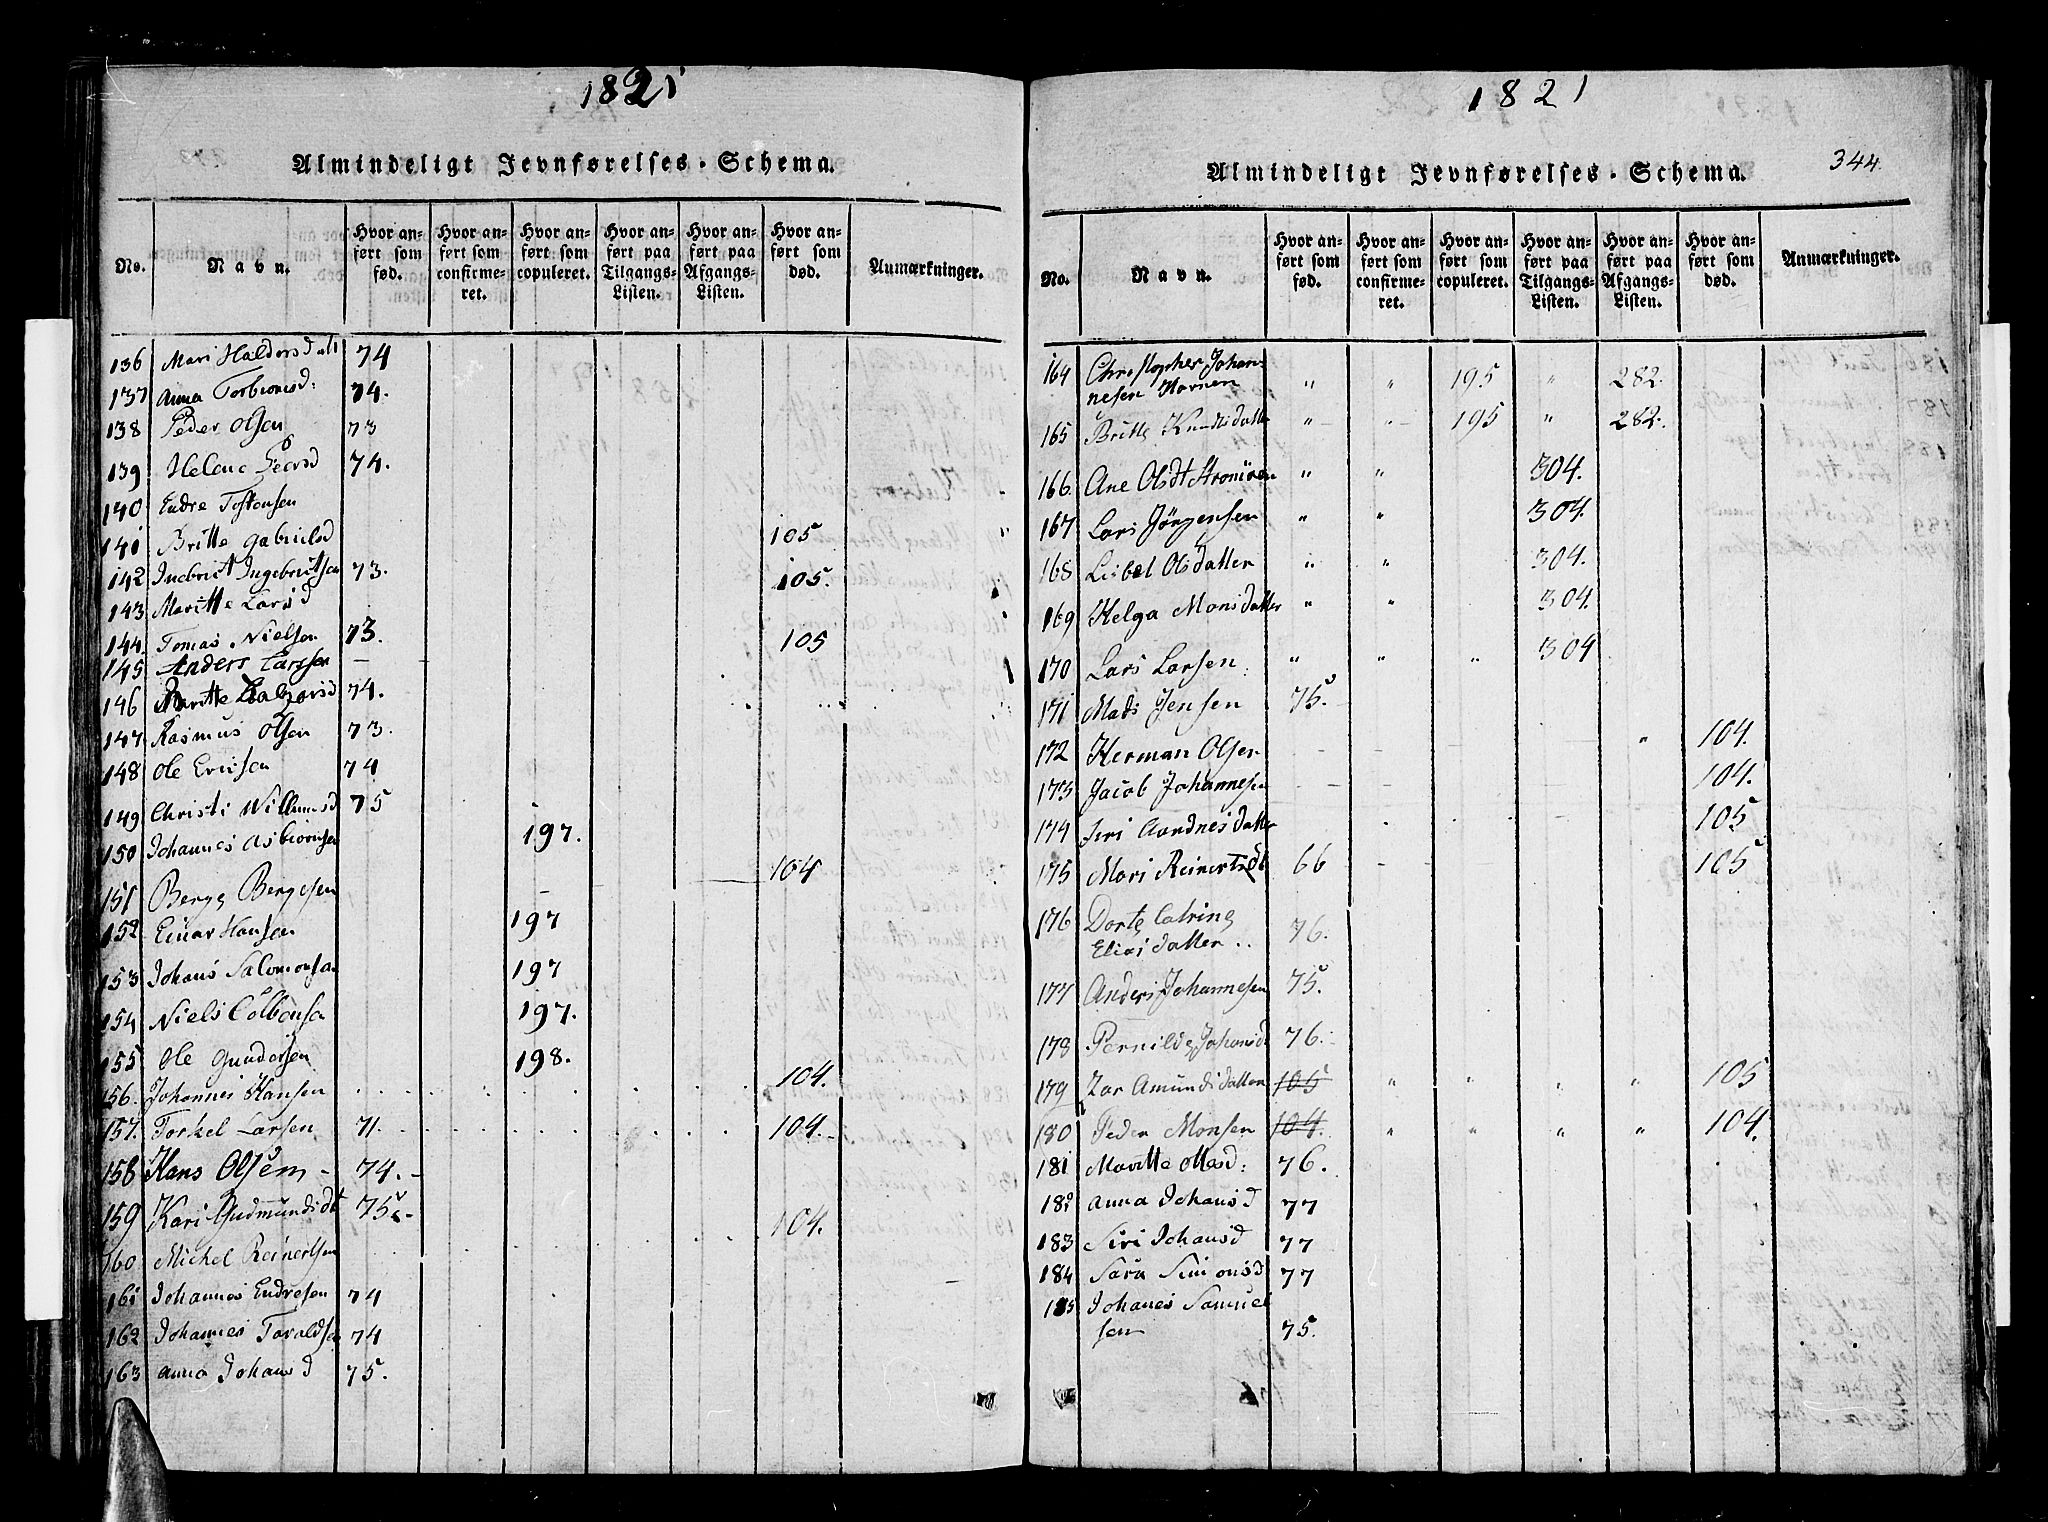 1821
Almindeligt Jevnførelses-Schema.
No.
Navn.
Hvor an-
ført som
fød.
Hvor an-
ført som
confirme-
ret.
Hvor an-
ført som
copuleret.
Hvor an-
ført paa
Tilgangs-
Listen.
Hvor an-
ført paa
Afgangs-
Listen.
Hvor an-
ført som
død.
Anmærkninger.
136 Mari Haldorsdatt 74
137 Anna Torbiørnsd: 74.
138 Peder Olsen 73
139 Helene Peersd 74.
140 Endre Tostensen
141 Britte Gabrielsd 105
142 Inebrict Ingebrictsen 73. 105.
143 Maritte Larsd
144. Tomas Nielsen 73. 105
145 Anders Larssen –
146 Maritte 74.
147. Rasmus Olsen 73.
148 Ole Ericsen 74
149 Christi Willumsd 75
150 Johannes Asbiørnsen 197.
151 Berge Bergesen 104
152 Einar Hansen 197
153 Johans Salomonsen 197
154 Niels Colbensen 197.
155 Ole Gundersen 198.
156. Johannes Hansen 104.
157. Torkel Larsen 71. 104.
158 Hans Olsen – 74. –
159 Kari Gudmundsdt 75 –
160 Michel Reinertsen 104.
161 Johannes Endresen 74
162 Johannes Toraldsen 74
163 Anna Johansd 75.
1821
344.
Almindeligt Jevnførelses-Schema.
No.
Navn.
Hvor an-
ført som
fød.
Hvor an-
ført som
confirme-
ret.
Hvor an-
ført som
copuleret.
Hvor an-
ført paa
Tilgangs-
Listen.
Hvor an-
ført paa
Afgangs-
Listen.
Hvor an-
ført som
død.
Anmærkninger.
164 Christopher Johan-
nesen " " 195 " 282.
165 Britte Knudsdatter " " 195 " 282.
166. Ane Olsdt " " 304.
167 Lars Jörgensen " " 304.
168 Lisbet Olsdatter " " 304.
169 Helga Monsdatter " " 304.
170 Lars Larsen " " " 304
171 Mads Jensen 75.
172 Herman Olsen " 104.
173 Jacob Johannesen 104.
174 Siri Aardnesdatter 105
175 Mari Reinertsdt 66 105
176 Dorte Catrine
Eliasdatter .. 76.
177 Anders Johannesen 75.
178 Pernilde Johansd 76.
179 Zar Amundsdatter 105 " " " " 105
180 Peder Monsen 104. " " " " 104.
181 Maritte Olesd: 76.
182 Anna Johansd 77
183 Siri Johansd 77
184 Sara Simonsd 77
185 Johanes Samuel
sen 75.